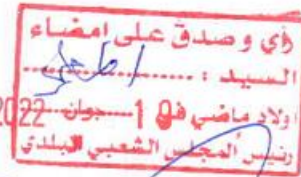 رأي و صدق على امضاء
السيد : ..........
اولاد ماضي في 1 جوان 2022
رئيس المجلس الشعبي البلدي